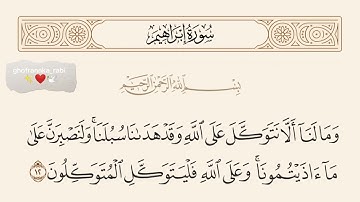 سُورَةُ إِبْرَاهِيم
ghofraneka_rabi
بِسْمِ ٱللَّهِ ٱلرَّحْمَٰنِ ٱلرَّحِيمِ
وَمَا لَنَآ أَلَّا نَتَوَكَّلَ عَلَى ٱللَّهِ وَقَدْ هَدَىٰنَا سُبُلَنَا ۚ وَلَنَصْبِرَنَّ عَلَىٰ
مَآ ءَاذَيْتُمُونَا ۚ وَعَلَى ٱللَّهِ فَلْيَتَوَكَّلِ ٱلْمُتَوَكِّلُونَ ١٢